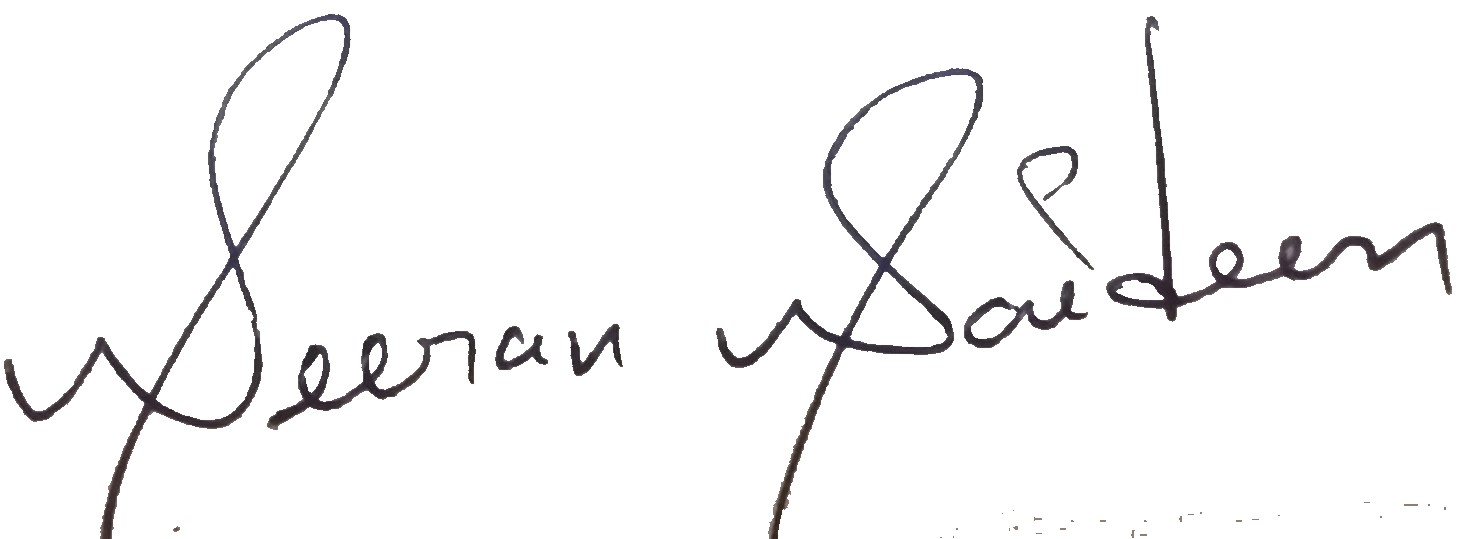 Meeran Maideen